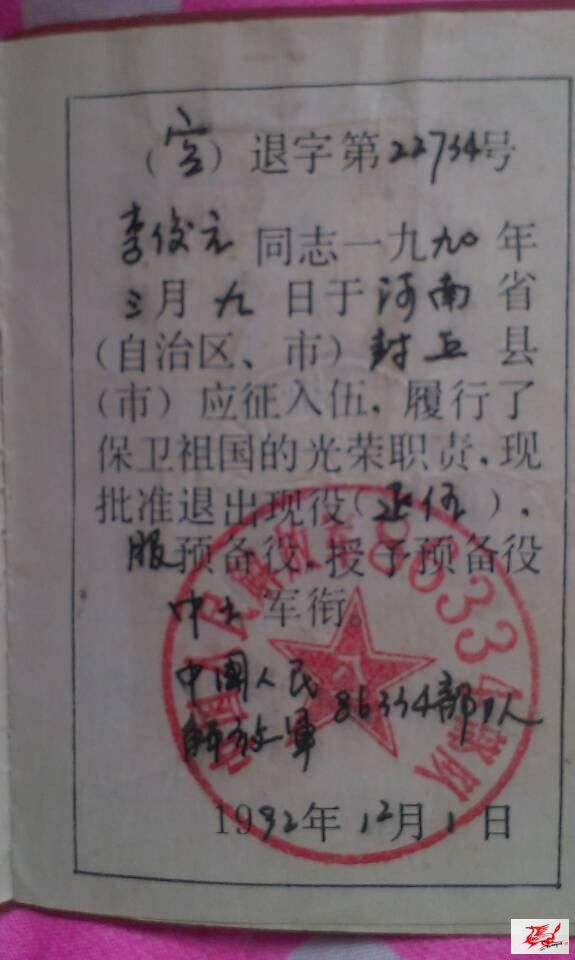 （空）退字第22734号
李俊元同志一九九〇年
三月九日于河南省
（自治区、市）封丘县
（市）应征入伍，履行了
保卫祖国的光荣职责，现
批准退出现役（退伍），
服预备役，授予预备役
中士军衔。
中國人民
解放軍86334部队
1992年12月1日
中国人民解放军86334部队